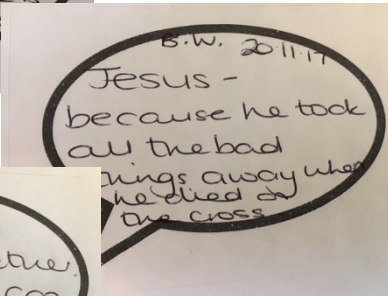 B.W. 20.11.17
Jesus -
because he took
all the bad
things away when
he died on
the cross